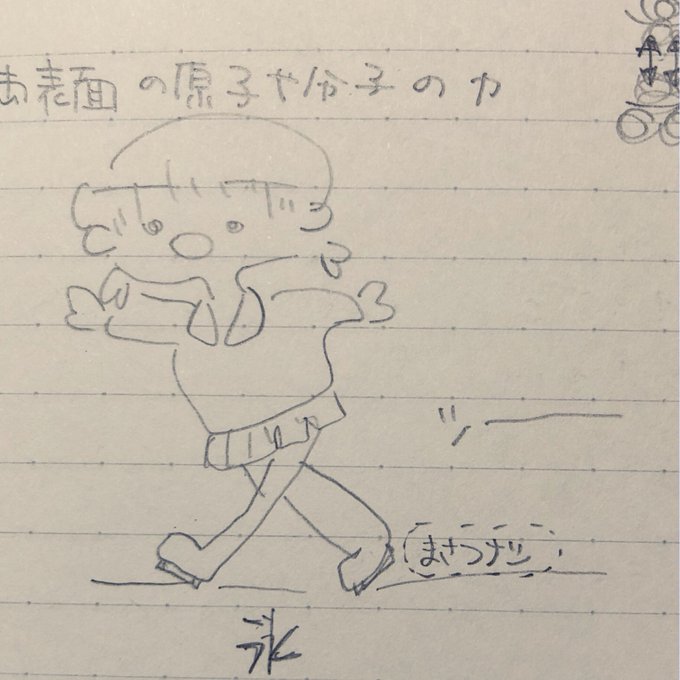 表面の原子や分子の力
ツー
まさつナシ
氷